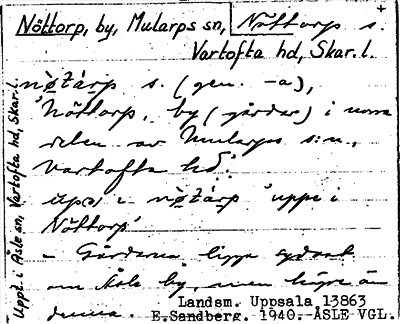 Nöttorp, by, Mularps sn, Nöttorp s. +
Vartofta hd, Skar.l.
nøtårp s. (gen. -a),
'Nöttorp, by (gårdar) i norra
delen av Mularps s:n,
Vartofta hd'.
upa i nøtårp 'uppe i
Nöttorp'
- Gårdarna ligga sydost
om Åsle by, men högre än
denna.
Landsm. Uppsala 13863
E.Sandberg. 1940. ÅSLE VGL.
Uppt. i Åsle sn, Vartofta hd, Skar.l.